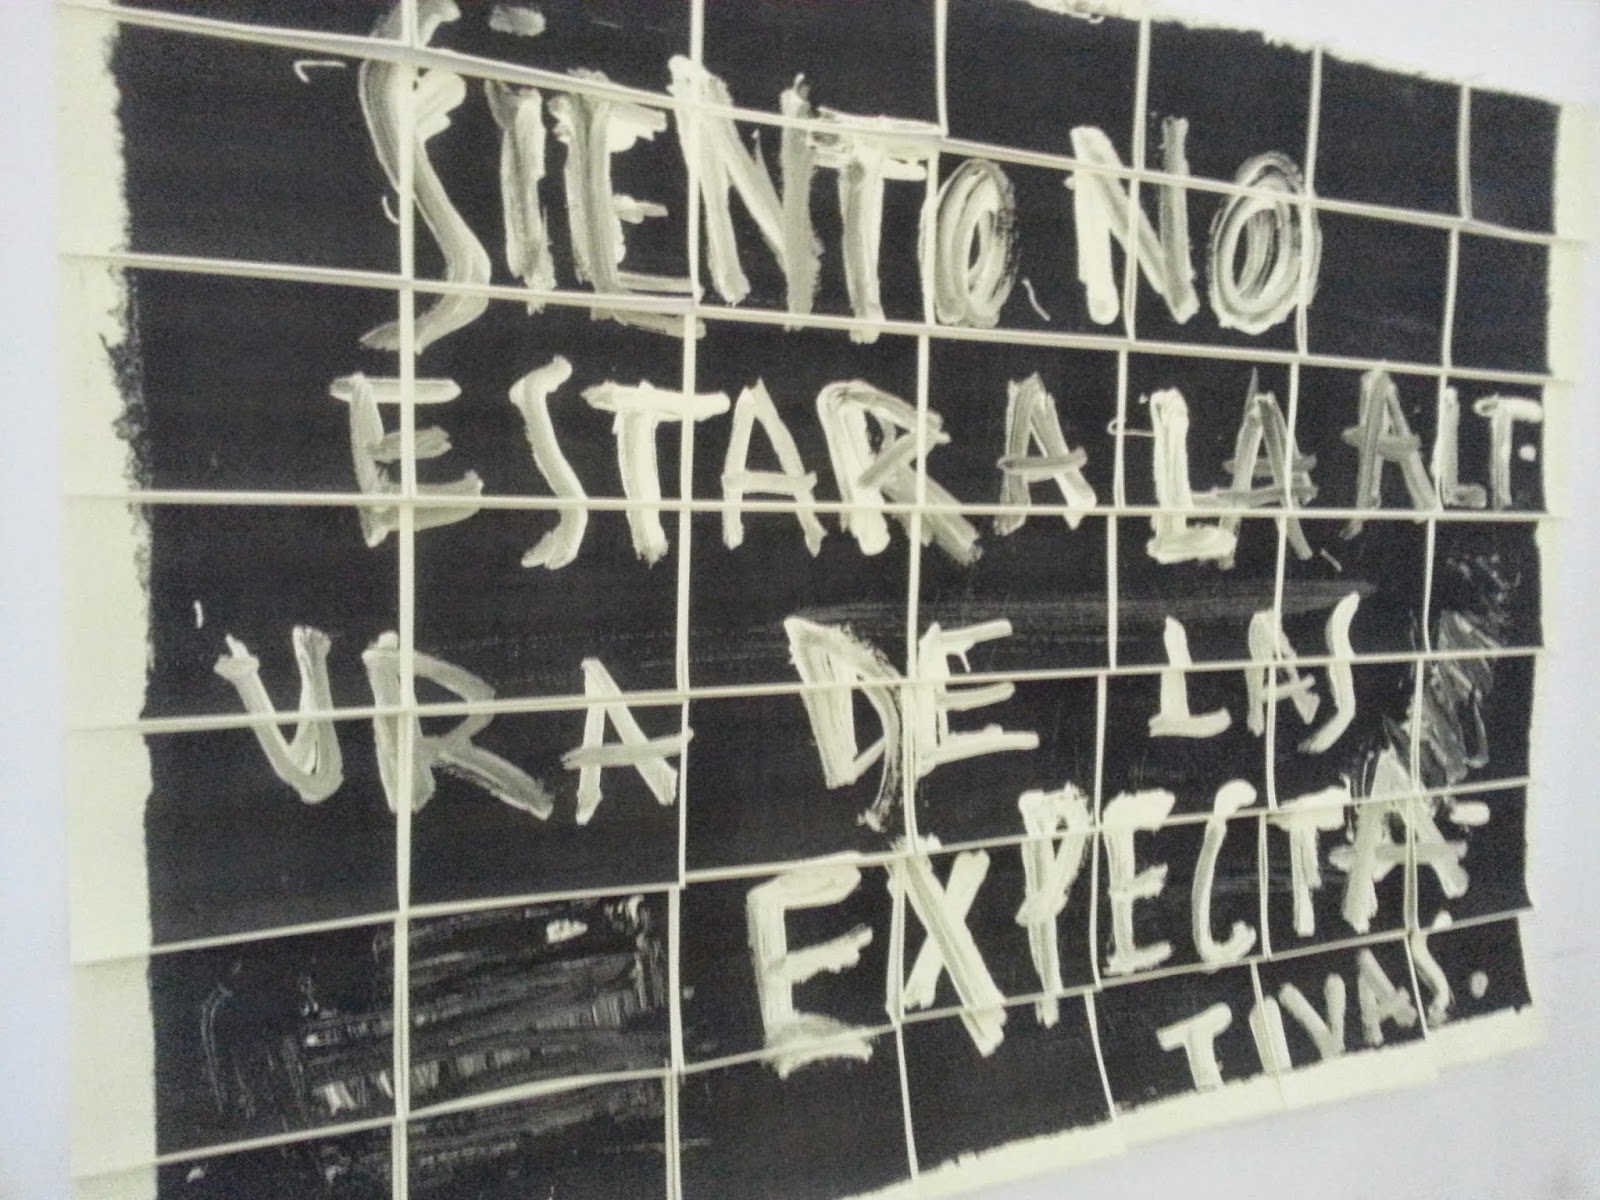 SIENTO NO
ESTAR A LA ALT.
URA DE LAS
EXPECTA-
TIVAS.